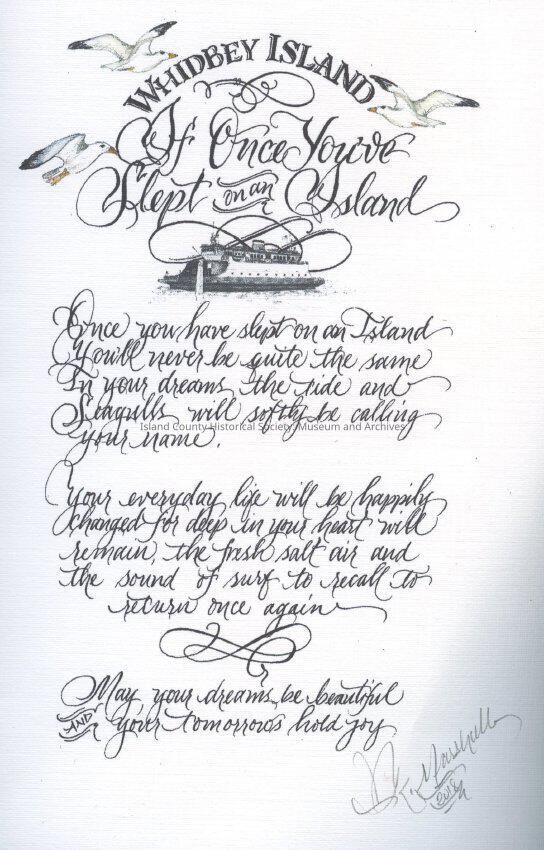 WHIDBEY ISLAND
If Once You've
Slept on an Island
Once you have slept on an Island
You'll never be quite the same
In your dreams, the tide and
Seagulls will softly be calling
your name.
Island County Historical Society, Museum and Archives
Your everyday life will be happily
changed for deep in your heart will
remain, the fresh salt air and
the sound of surf to recall to
return once again
May your dreams be beautiful
AND your tomorrows hold joy
Marshall